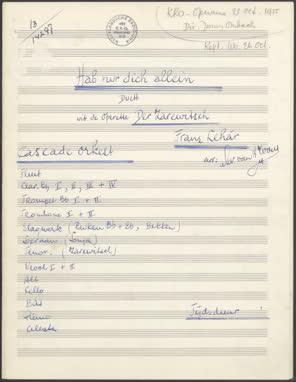 13
KRO-Opname 23 oct. 1975
Dir.
Rept. Wo. 22 Oct.
Hab nur dich allein
Duett
uit de operette Der Zarewitsch
Franz Lehár
Cascade orkest
arr:
Fluit
Clar. Bb I, II, III + IV
Trompet Bb I + II
Trombone I + II
Slagwerk (Pauken Bb + Eb, Bekken)
Sopraan (Sonja)
Tenor. (Zarewitsch)
Viool I + II
Alt
Cello
Bas
Celesta
Tijdsduur :